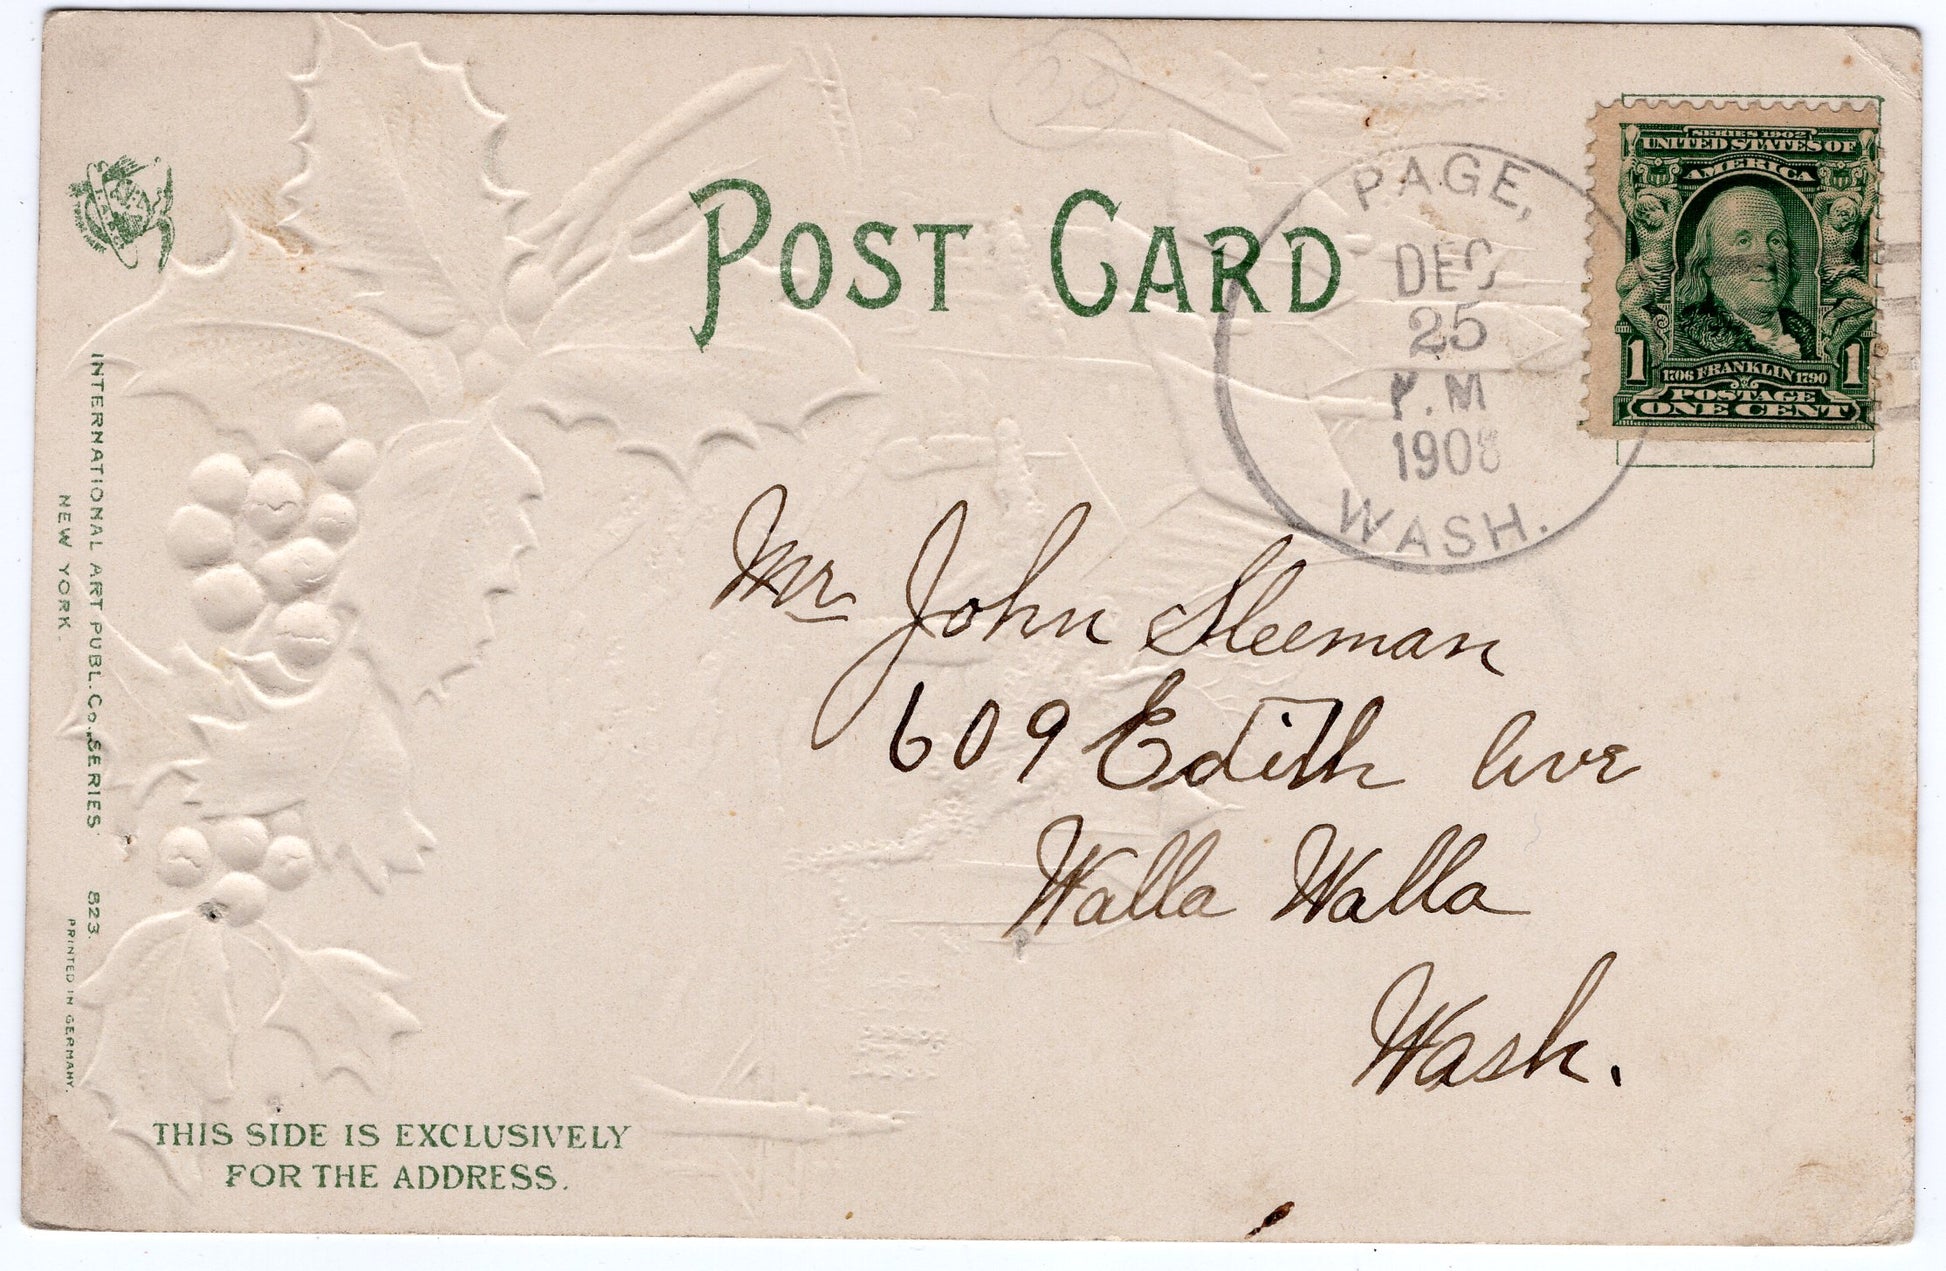 POST CARD
PAGE,
DEC
25
P.M
1908
WASH.
SERIES 1902
UNITED STATES OF
AMERICA
1 1706 FRANKLIN 1790 1
POSTAGE
ONE CENT
Mr John Sleeman
609 Edith Ave
Walla Walla
Wash.
INTERNATIONAL ART PUBL. Co., SERIES 823.
NEW YORK.
PRINTED IN GERMANY.
THIS SIDE IS EXCLUSIVELY
FOR THE ADDRESS.